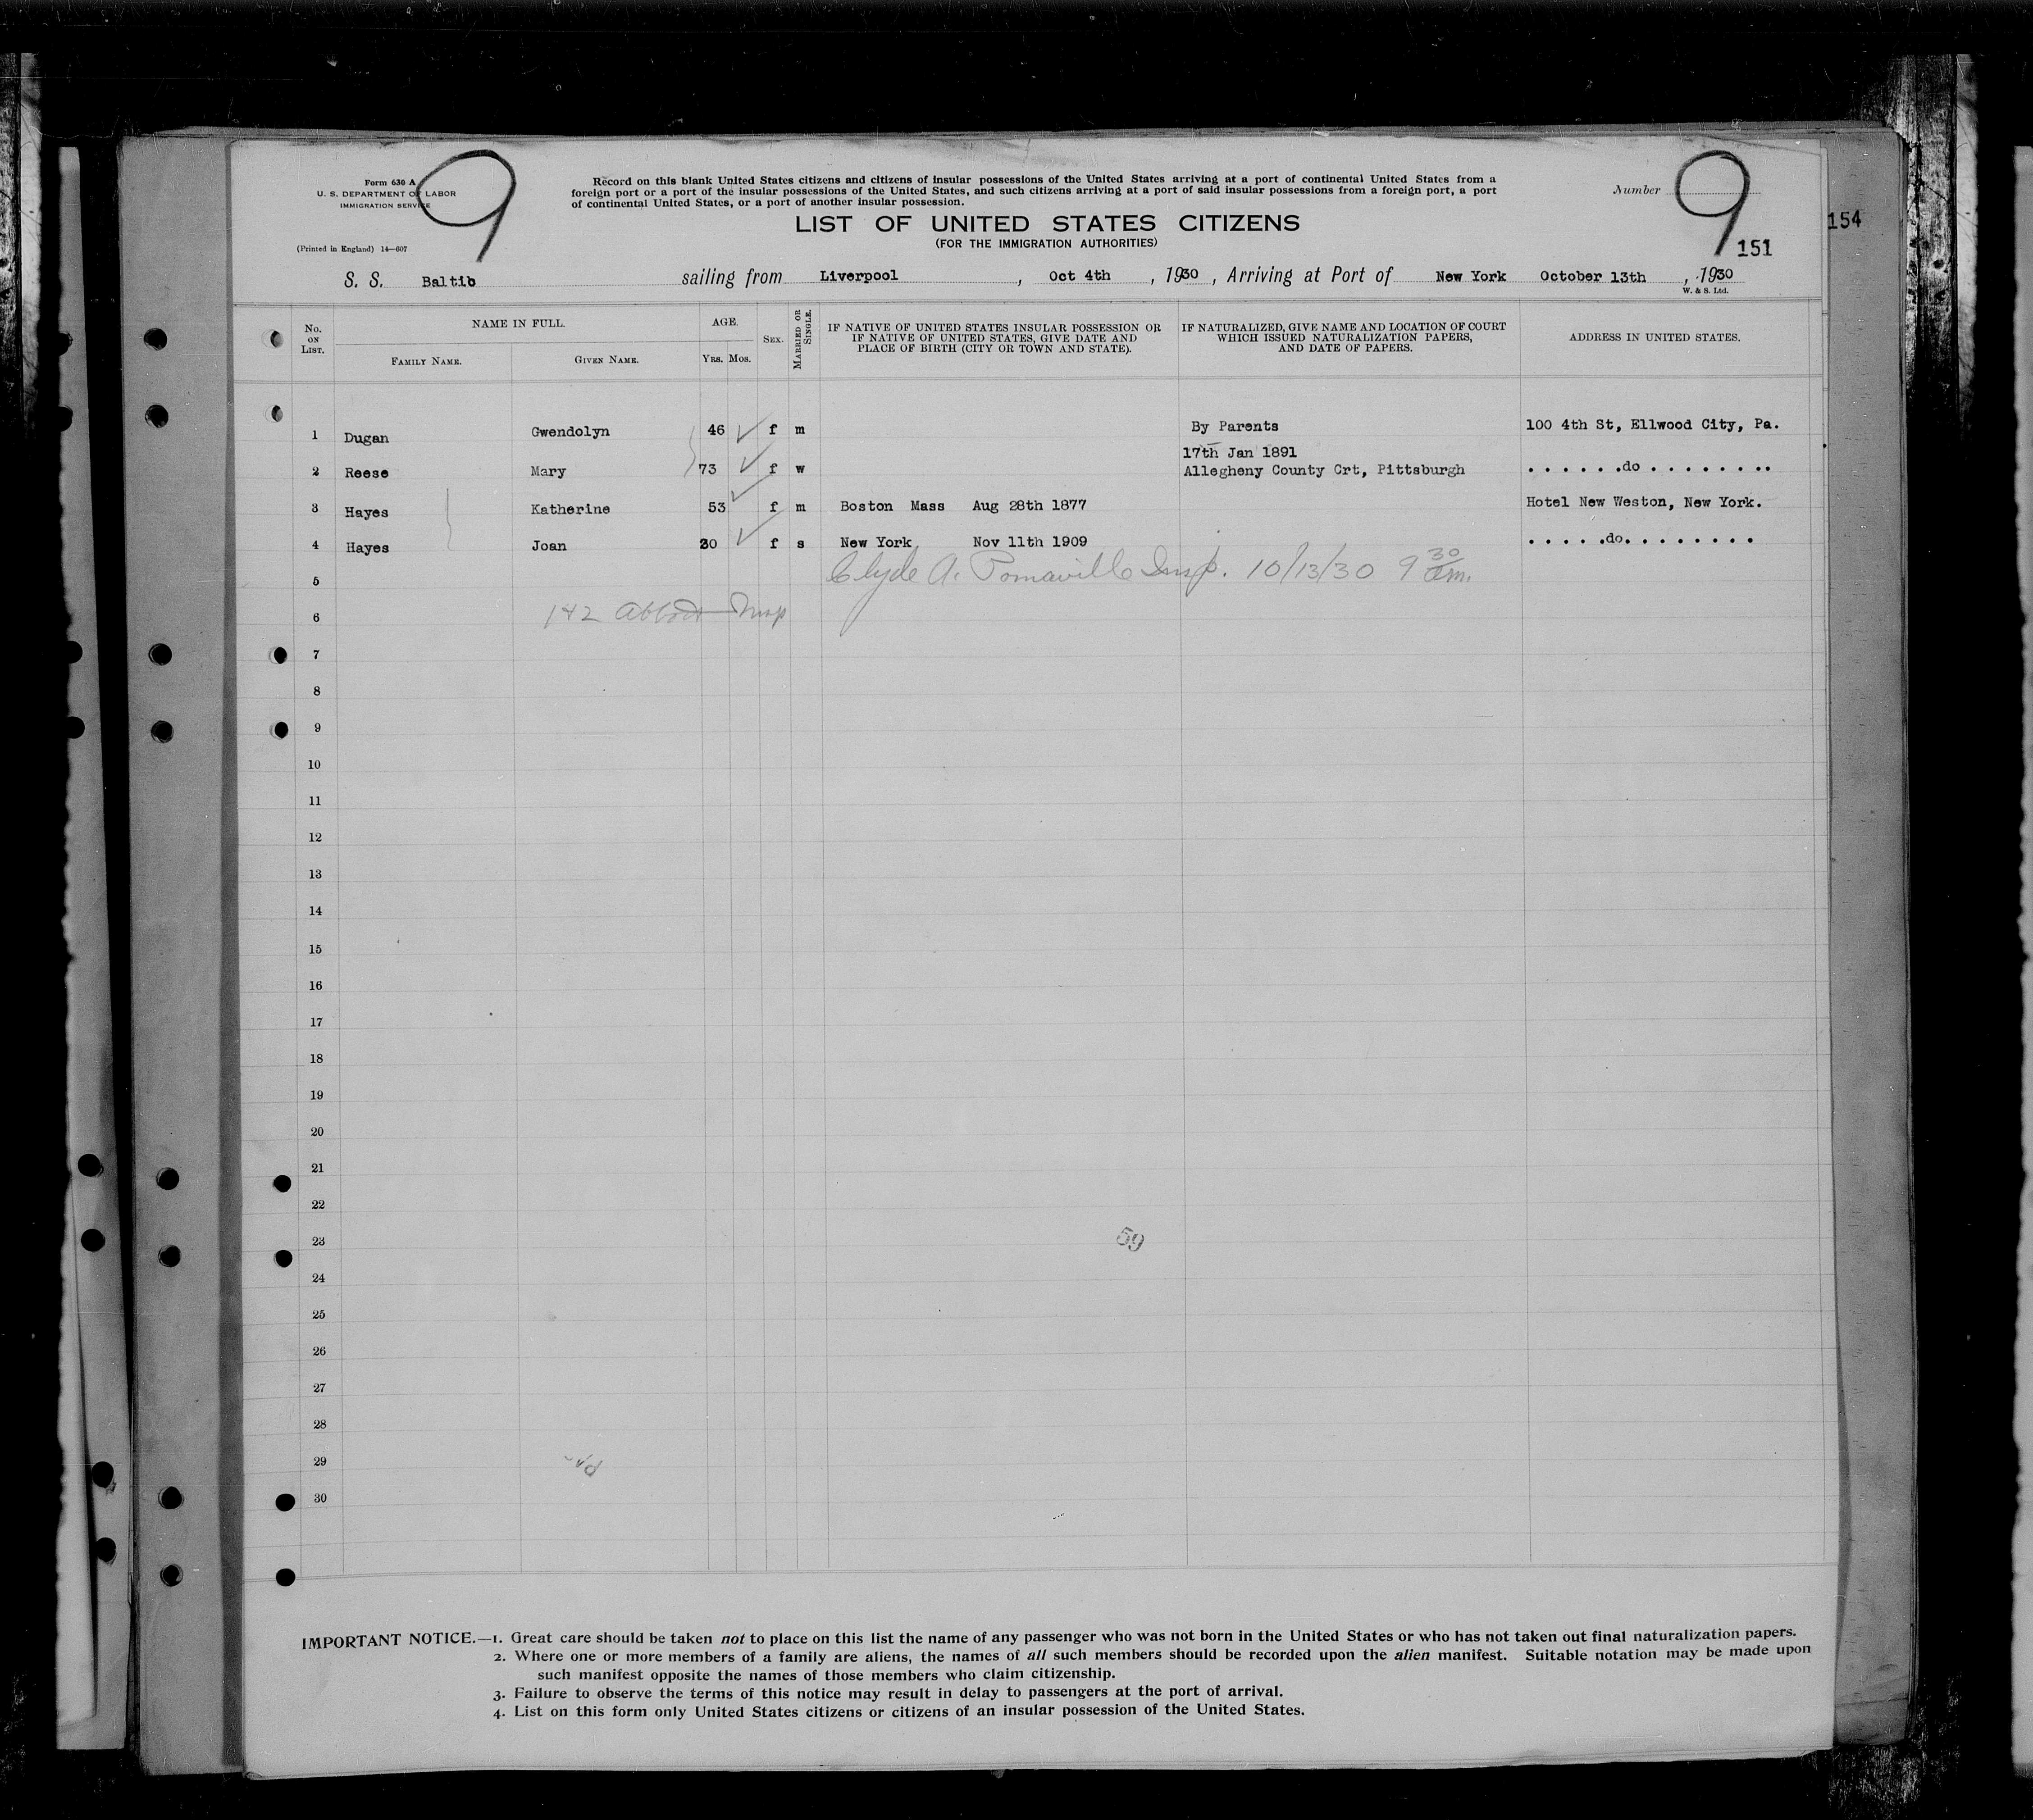 Form 630 A
U. S. DEPARTMENT OF LABOR
IMMIGRATION SERVICE
(Printed in England) 14—607
9
Record on this blank United States citizens and citizens of insular possessions of the United States arriving at a port of continental United States from a
foreign port or a port of the insular possessions of the United States, and such citizens arriving at a port of said insular possessions from a foreign port, a port
of continental United States, or a port of another insular possession.
Number 9
151
154
LIST OF UNITED STATES CITIZENS
(FOR THE IMMIGRATION AUTHORITIES)
S. S. Baltic sailing from Liverpool, Oct 4th, 1930, Arriving at Port of New York October 13th, 1930
W. & S. Ltd.
No. ON LIST. NAME IN FULL. FAMILY NAME. GIVEN NAME. AGE. YRS. MOS. SEX. MARRIED OR SINGLE. IF NATIVE OF UNITED STATES INSULAR POSSESSION OR IF NATIVE OF UNITED STATES, GIVE DATE AND PLACE OF BIRTH (CITY OR TOWN AND STATE). IF NATURALIZED, GIVE NAME AND LOCATION OF COURT WHICH ISSUED NATURALIZATION PAPERS, AND DATE OF PAPERS. ADDRESS IN UNITED STATES.
1 Dugan Gwendolyn 46 f m By Parents 100 4th St, Ellwood City, Pa.
17th Jan 1891
2 Reese Mary 73 f w Allegheny County Crt, Pittsburgh . . . . . . .do . . . . . . . ..
3 Hayes Katherine 53 f m Boston Mass Aug 28th 1877 Hotel New Weston, New York.
4 Hayes Joan 20 f s New York Nov 11th 1909 . . . . .do. . . . . . . . .
5 Clyde A. Pomaville Insp. 10/13/30 9 30 am.
6 142 Abbott Insp
7
8
9
10
11
12
13
14
15
16
17
18
19
20
21
22
23 59
24
25
26
27
28
29
30
IMPORTANT NOTICE.—1. Great care should be taken not to place on this list the name of any passenger who was not born in the United States or who has not taken out final naturalization papers.
2. Where one or more members of a family are aliens, the names of all such members should be recorded upon the alien manifest. Suitable notation may be made upon
such manifest opposite the names of those members who claim citizenship.
3. Failure to observe the terms of this notice may result in delay to passengers at the port of arrival.
4. List on this form only United States citizens or citizens of an insular possession of the United States.